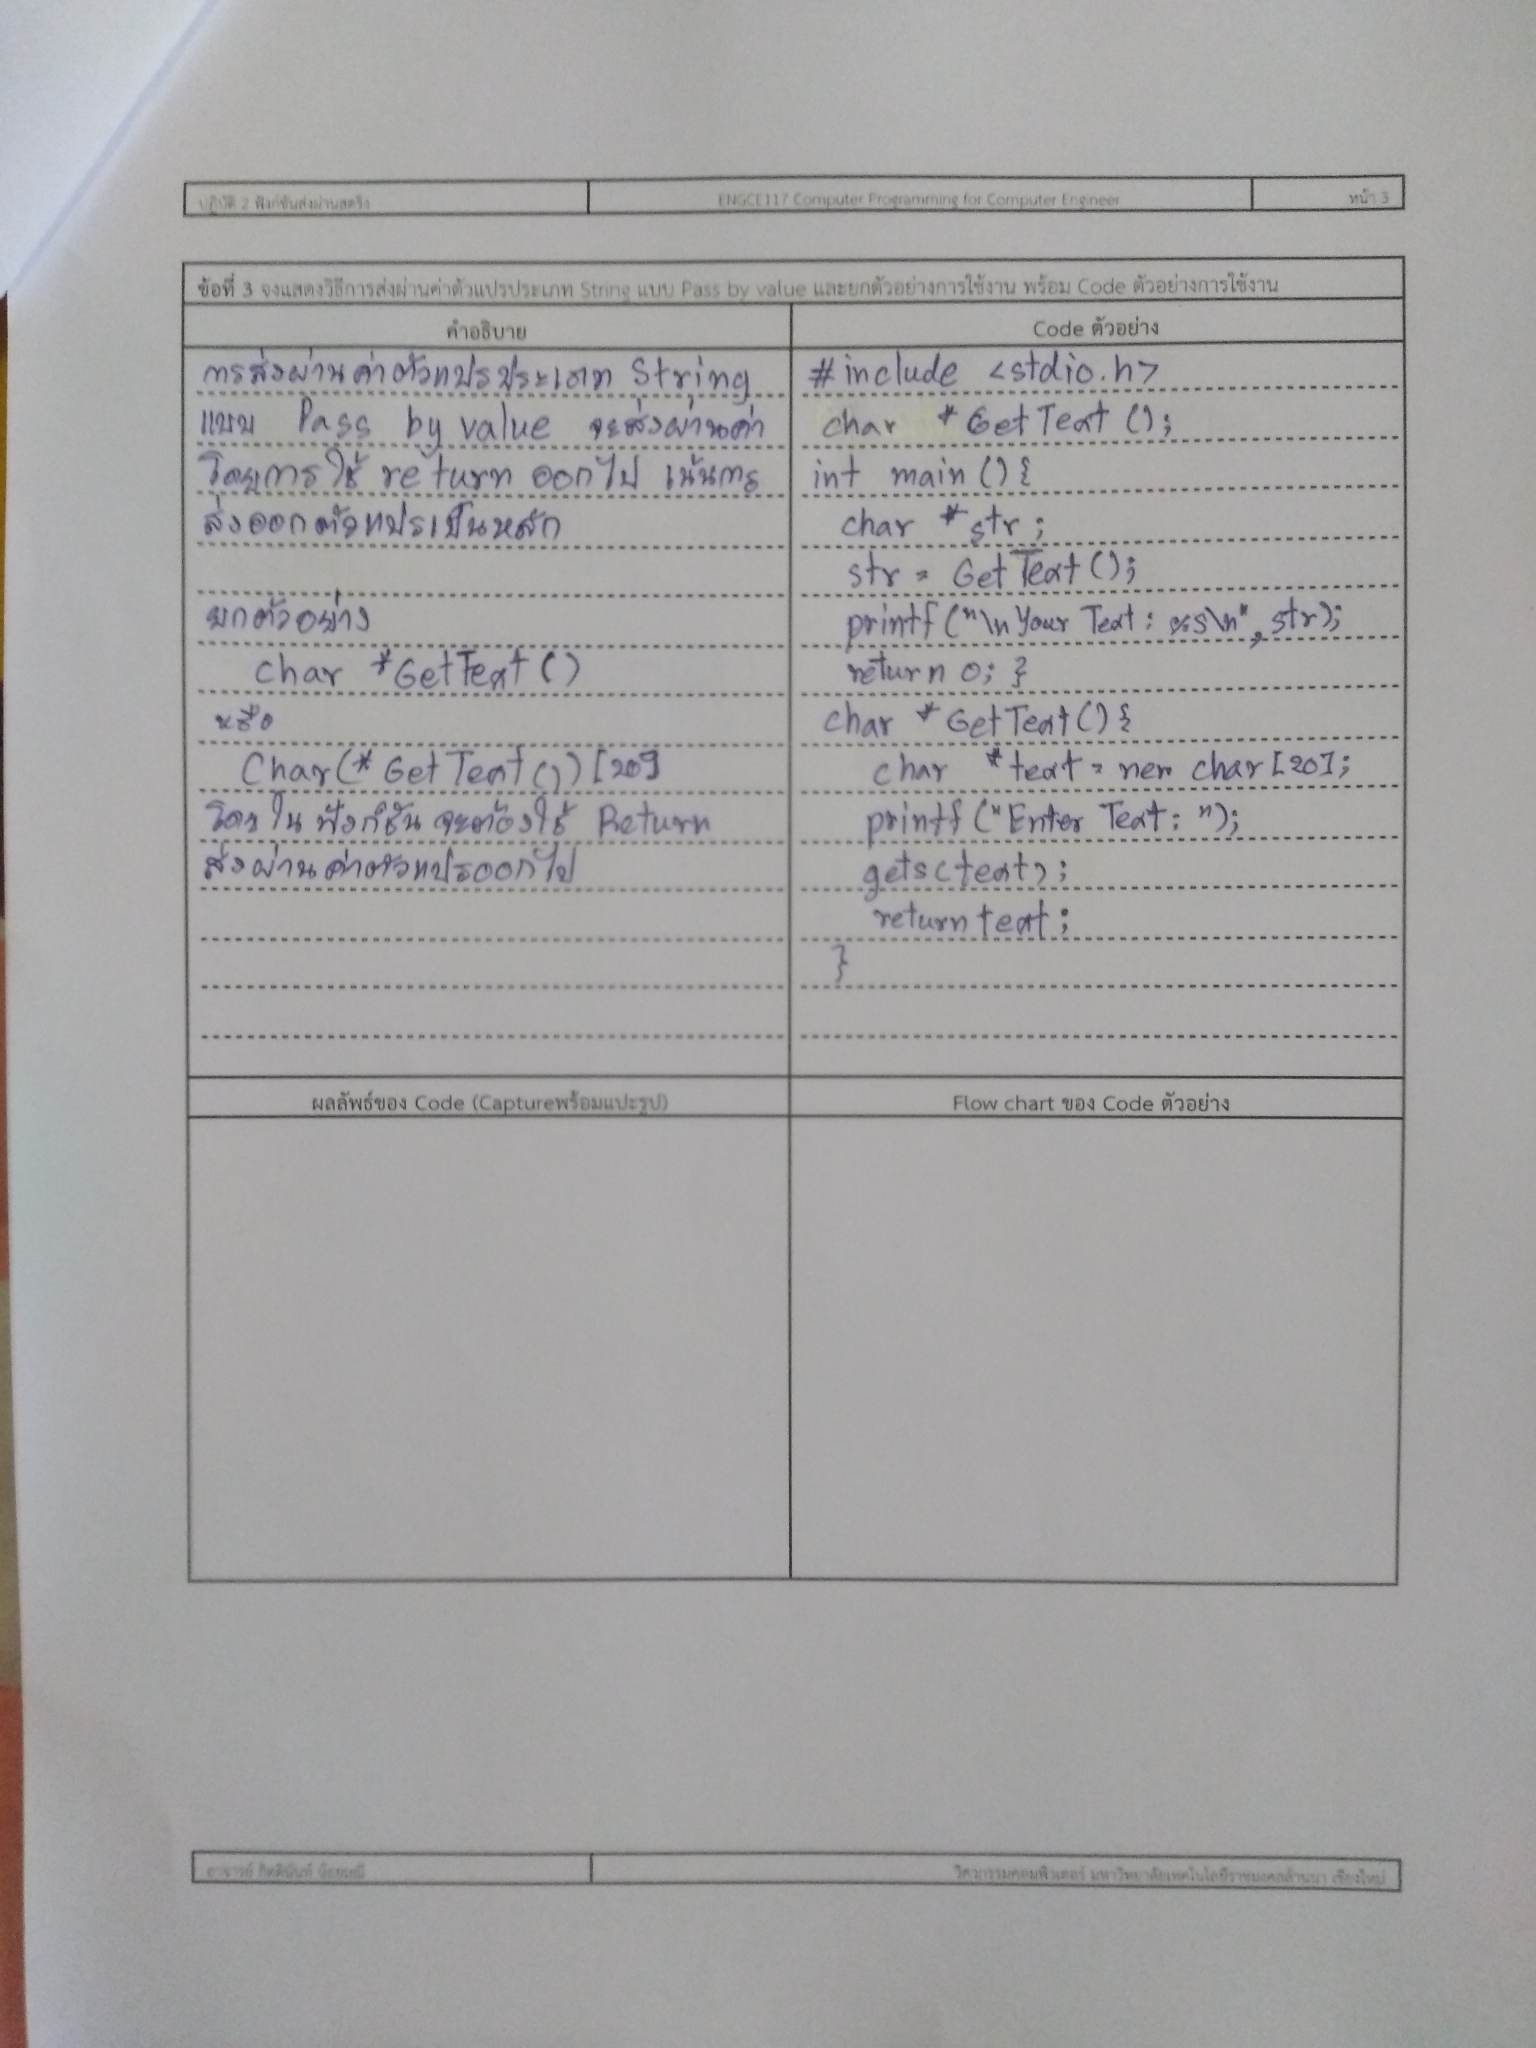 ปฏิบัติ 2 ฟังก์ชันส่งผ่านสตริง
ENGCE117 Computer Programming for Computer Engineer
หน้า 3
ข้อที่ 3 จงแสดงวิธีการส่งผ่านค่าตัวแปรประเภท String แบบ Pass by value และยกตัวอย่างการใช้งาน พร้อม Code ตัวอย่างการใช้งาน
คำอธิบาย
การส่งผ่านค่าตัวแปรประเภท String
แบบ Pass by value จะส่งผ่านค่า
โดยการใช้ return ออกไป เน้นการ
ส่งออกตัวแปรเป็นหลัก
ยกตัวอย่าง
char *GetText()
หรือ
Char(*GetText())[20]
โดยใน ฟังก์ชัน จะต้องใช้ Return
ส่งผ่านค่าตัวแปรออกไป
Code ตัวอย่าง
#include <stdio.h>
char *GetText();
int main(){
char *str;
str = GetText();
printf("\nYour Text: %s\n", str);
return 0; }
char *GetText(){
char *text = new char[20];
printf("Enter Text: ");
gets(text);
return text;
}
ผลลัพธ์ของ Code (Captureพร้อมแปะรูป)
Flow chart ของ Code ตัวอย่าง
อาจารย์ กิตตินันท์ น้อยมณี
วิศวกรรมคอมพิวเตอร์ มหาวิทยาลัยเทคโนโลยีราชมงคลล้านนา เชียงใหม่